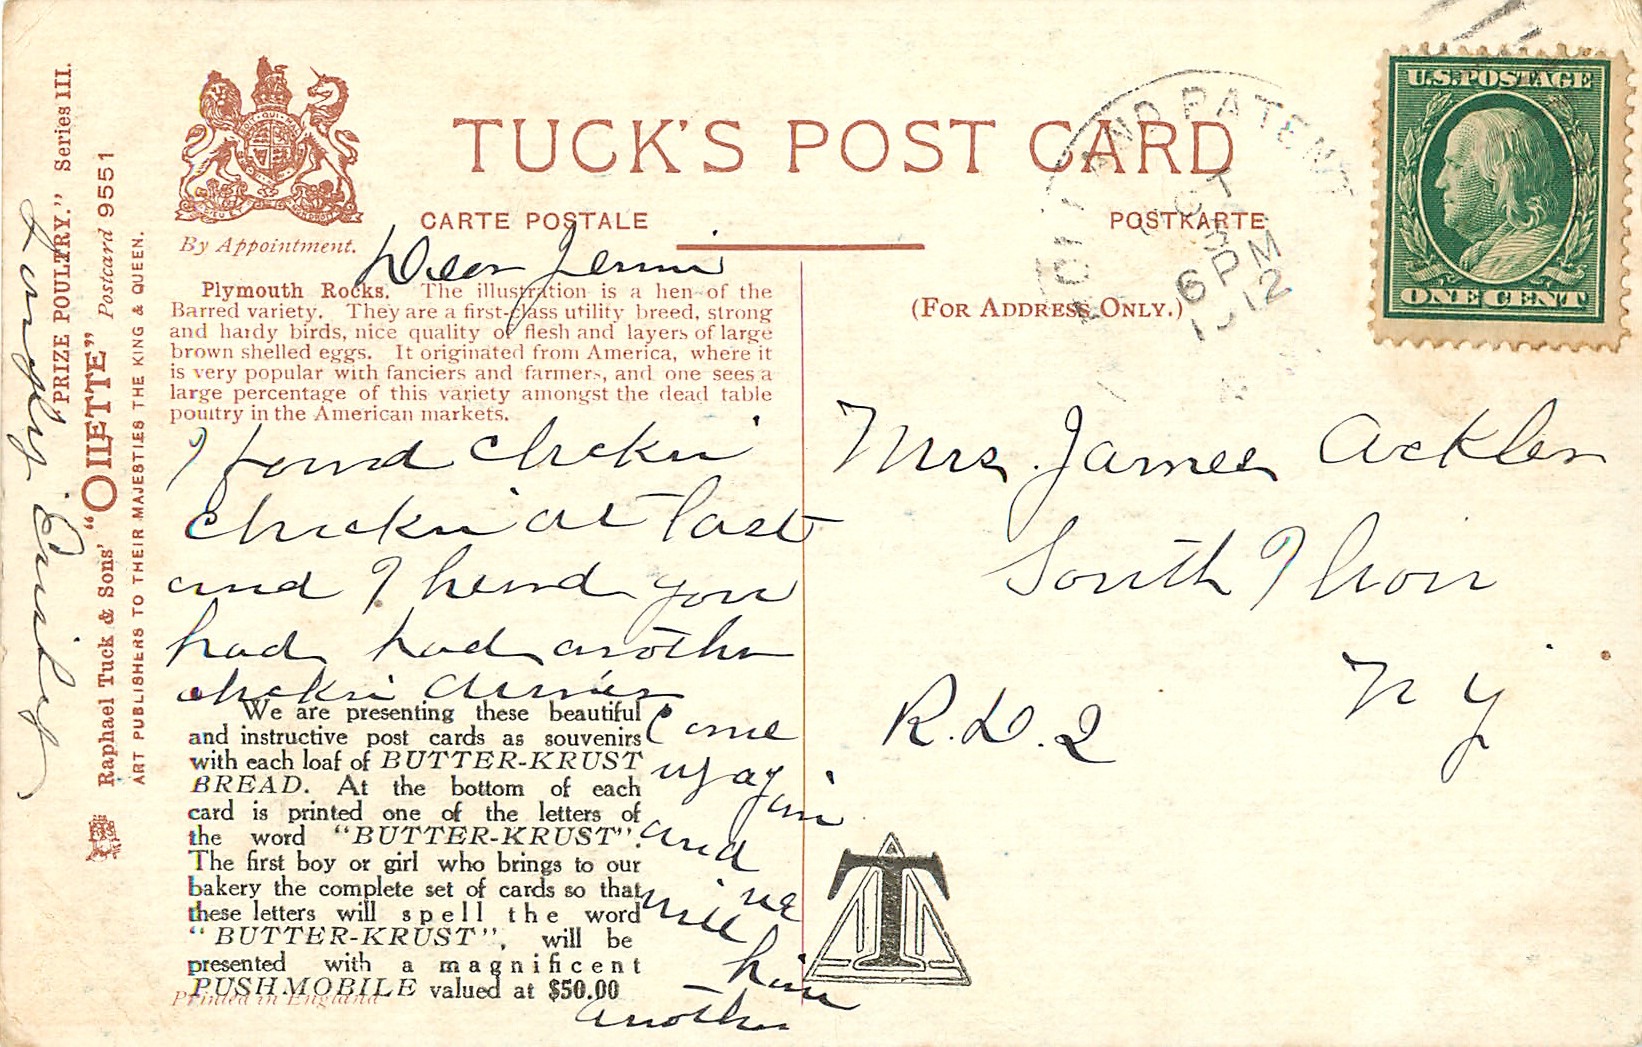 TUCK'S POST CARD
CARTE POSTALE
POSTKARTE
By Appointment.
(FOR ADDRESS ONLY.)
U.S. POSTAGE
ONE CENT
AND PATENT
OCT
6 PM
1912
Plymouth Rocks. The illustration is a hen of the
Barred variety. They are a first-class utility breed, strong
and hardy birds, nice quality of flesh and layers of large
brown shelled eggs. It originated from America, where it
is very popular with fanciers and farmers, and one sees a
large percentage of this variety amongst the dead table
poultry in the American markets.
Dear Jennie
I found chicken
chicken at last
and I heard you
had had another
chicken dinner
Come
up again
and
we
will
have
another
Lovingly
We are presenting these beautiful
and instructive post cards as souvenirs
with each loaf of BUTTER-KRUST
BREAD. At the bottom of each
card is printed one of the letters of
the word "BUTTER-KRUST".
The first boy or girl who brings to our
bakery the complete set of cards so that
these letters will spell the word
"BUTTER-KRUST", will be
presented with a magnificent
PUSHMOBILE valued at $50.00
Printed in England
T
Mrs. James Ackler
South
N Y
R.D. 2
PRIZE POULTRY." Series III.
Raphael Tuck & Sons' "OILETTE" Postcard 9551
ART PUBLISHERS TO THEIR MAJESTIES THE KING & QUEEN.